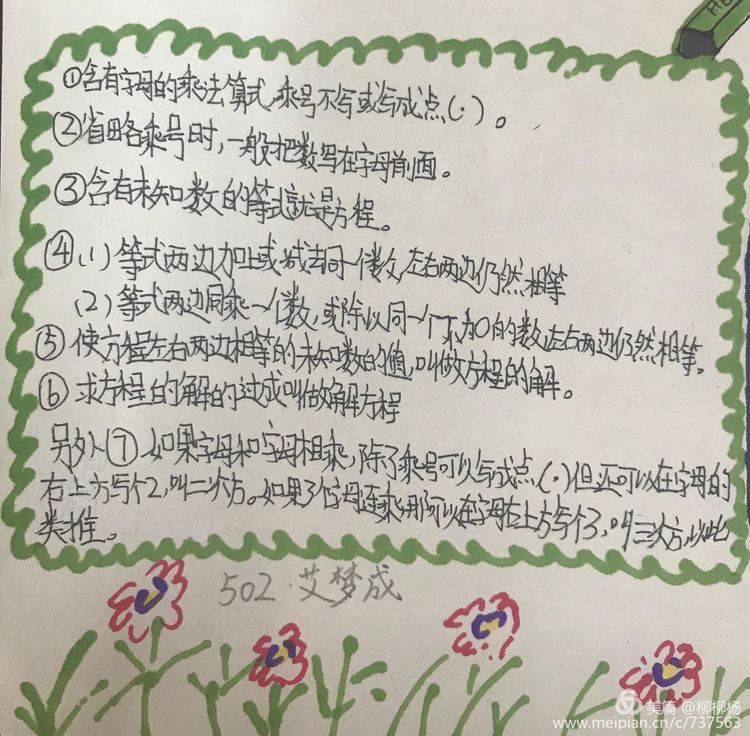 HB
①含有字母的乘法算式,乘号不写或写成点(·)。
②省略乘号时,一般把数写在字母前面。
③含有未知数的等式就是方程。
④(1)等式两边加上或减去同一个数,左右两边仍然相等
(2)等式两边同乘一个数,或除以同一个不为0的数,左右两边仍然相等。
⑤使方程左右两边相等的未知数的值,叫做方程的解。
⑥求方程的解的过成叫做解方程
另外⑦如果字母和字母相乘,除了乘号可以写成点(·)但还可以在字母的
右上方写个2,叫二次方。如果3个字母连乘,那可以在字母右上方写个3,叫三次方,以此
类推。
502·艾梦成
美篇 @柳柳杨
www.meipian.cn/c/737563